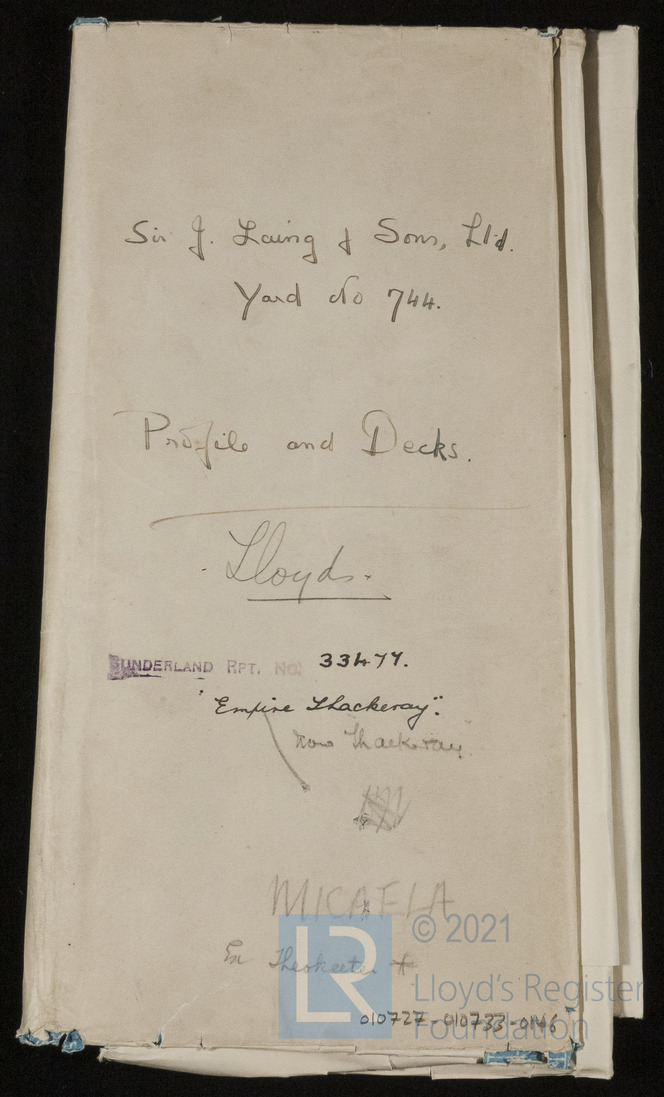 Sir J. Laing & Sons, Ltd.
Yard No 744.
Profile and Decks.
Lloyds.
SUNDERLAND RPT. NO. 33477.
"Empire Thackeray".
now Thackeray
MICAELA
Ex
LR
© 2021
Lloyd's Register
Foundation
010727-010733-0146